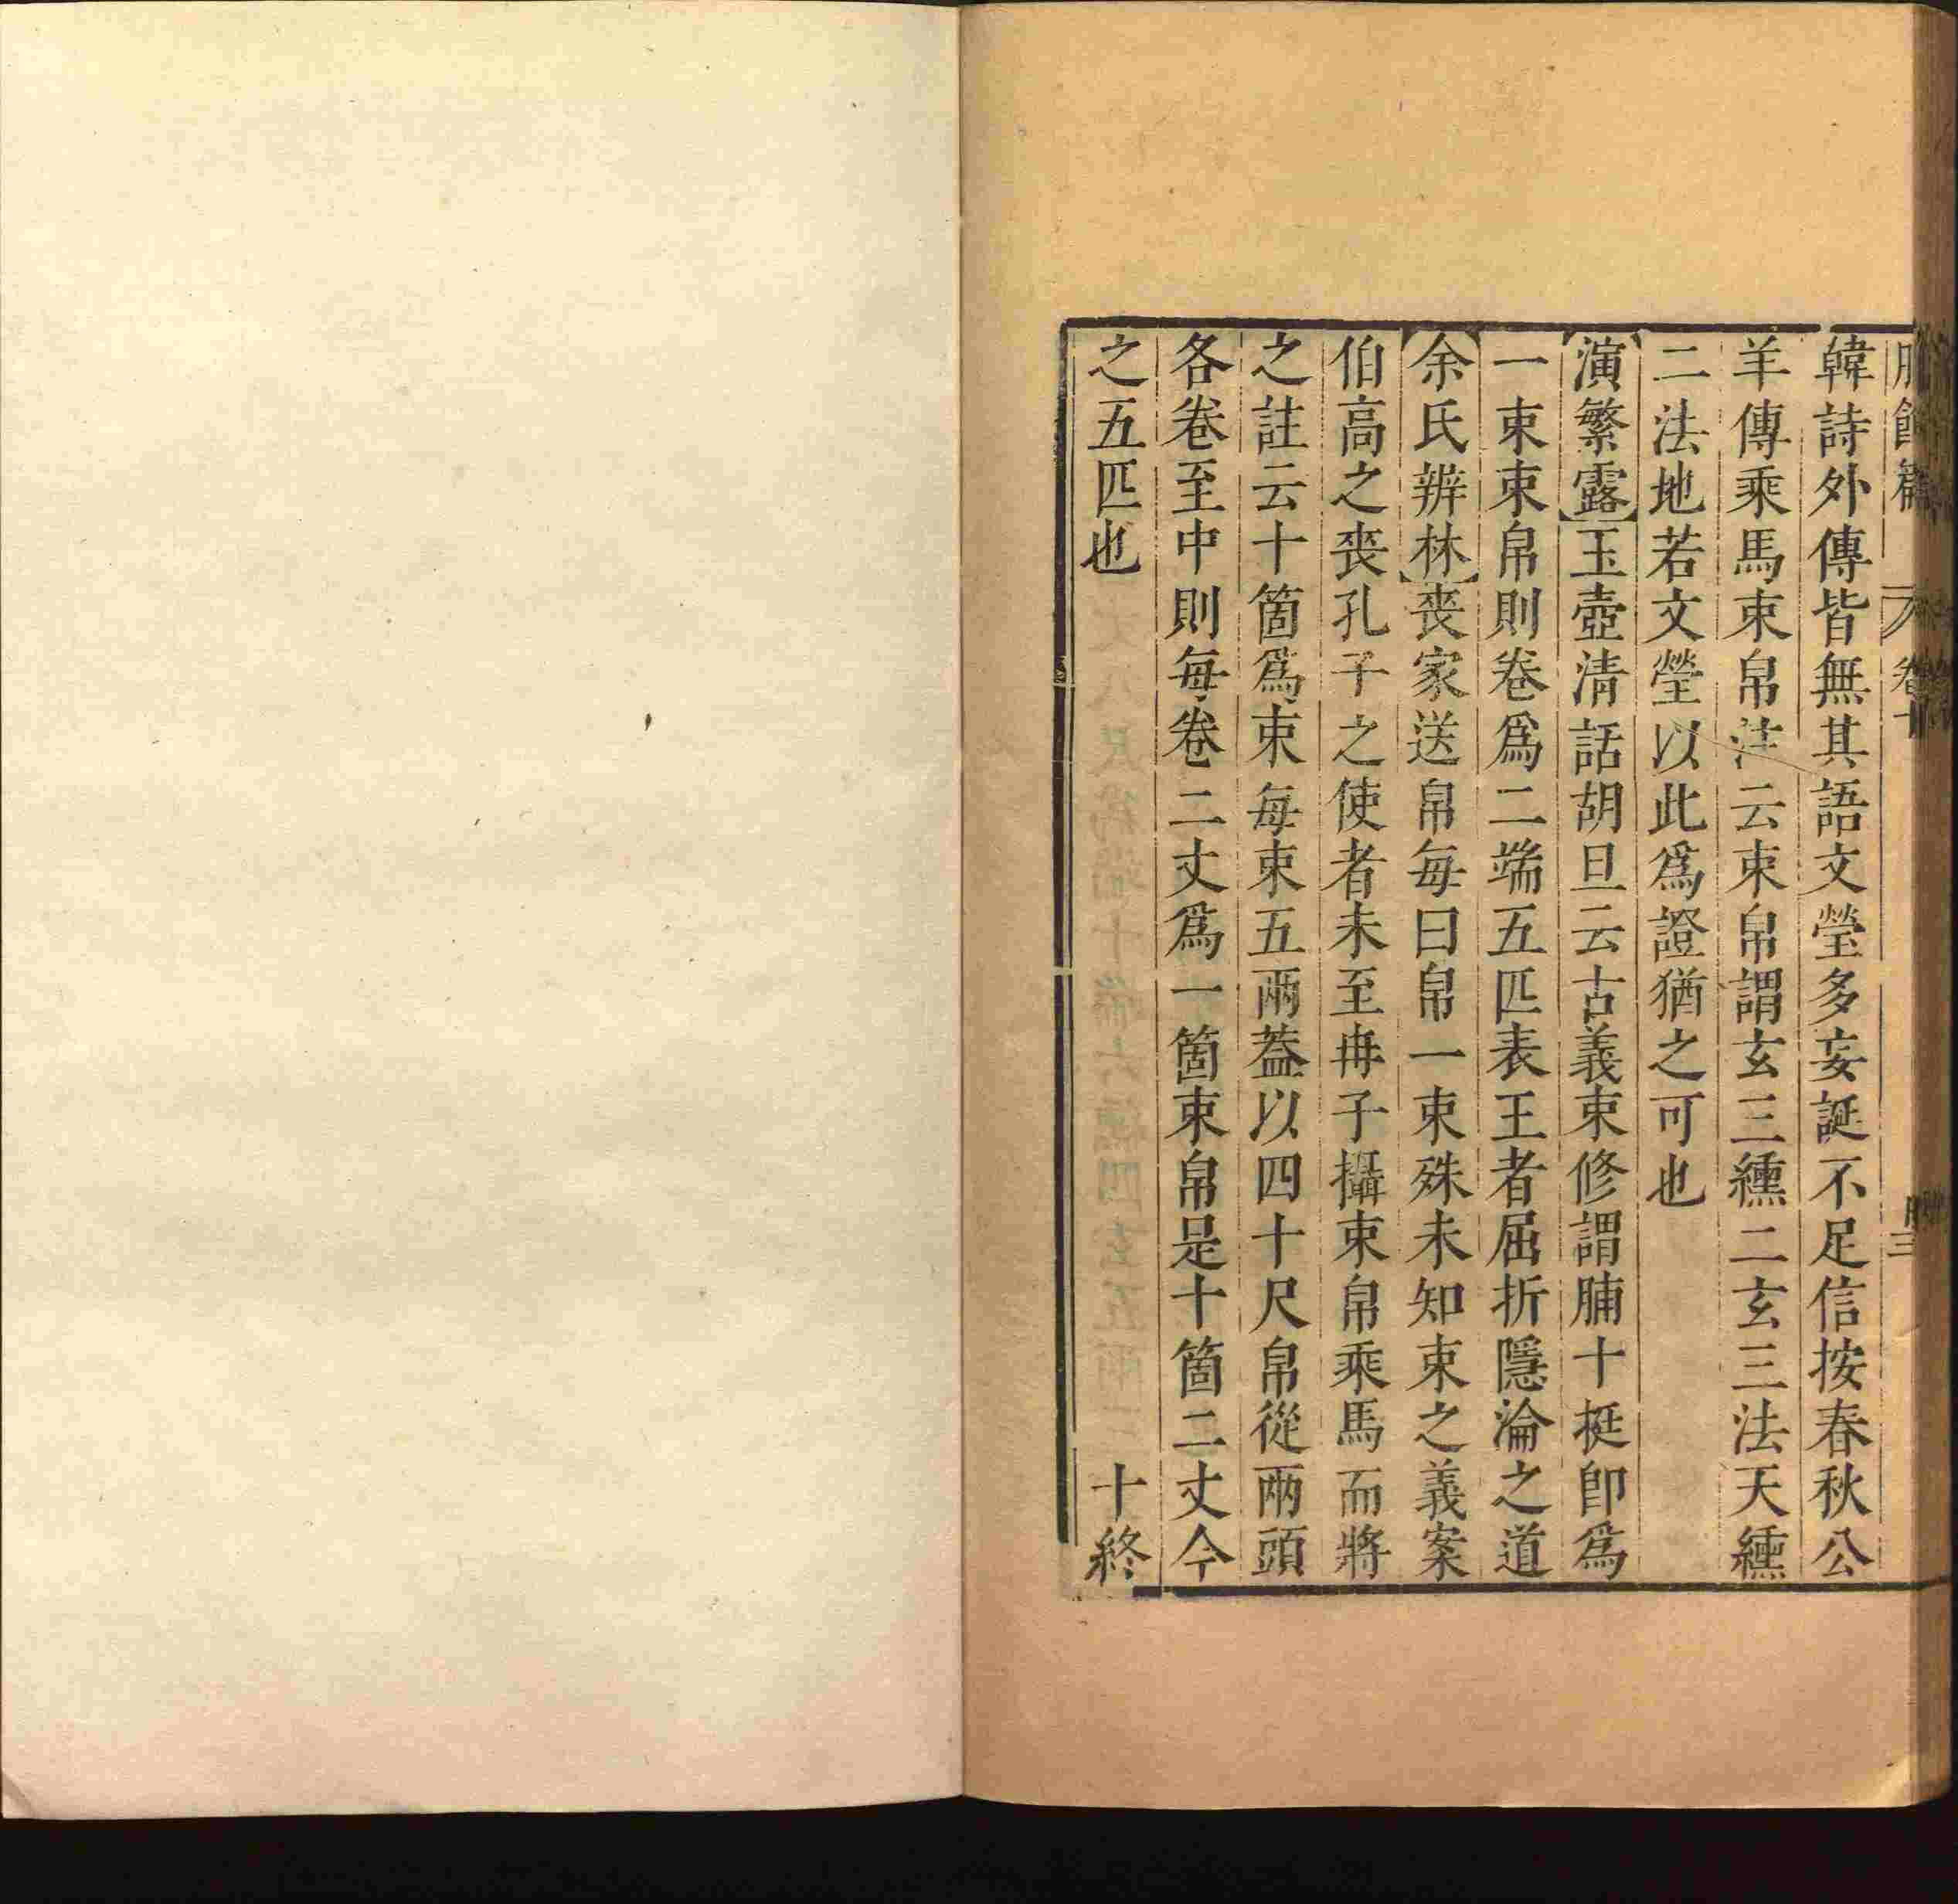 韓詩外傳皆無其語文瑩多妄誕不足信按春秋公
羊傳乘馬束帛注云束帛謂玄三纁二玄三法天纁
二法地若文瑩以此爲證猶之可也
演繁露玉壺清話胡旦云古義束修謂脯十挺卽爲
一束束帛則卷爲二端五匹表王者屈折隱淪之道
余氏辨林喪家送帛每曰帛一束殊未知束之義案
伯高之喪孔子之使者未至冉子攝束帛乘馬而將
之註云十箇爲束每束五兩蓋以四十尺帛從兩頭
各卷至中則每卷二丈爲一箇束帛是十箇二丈今
之五匹也
十終